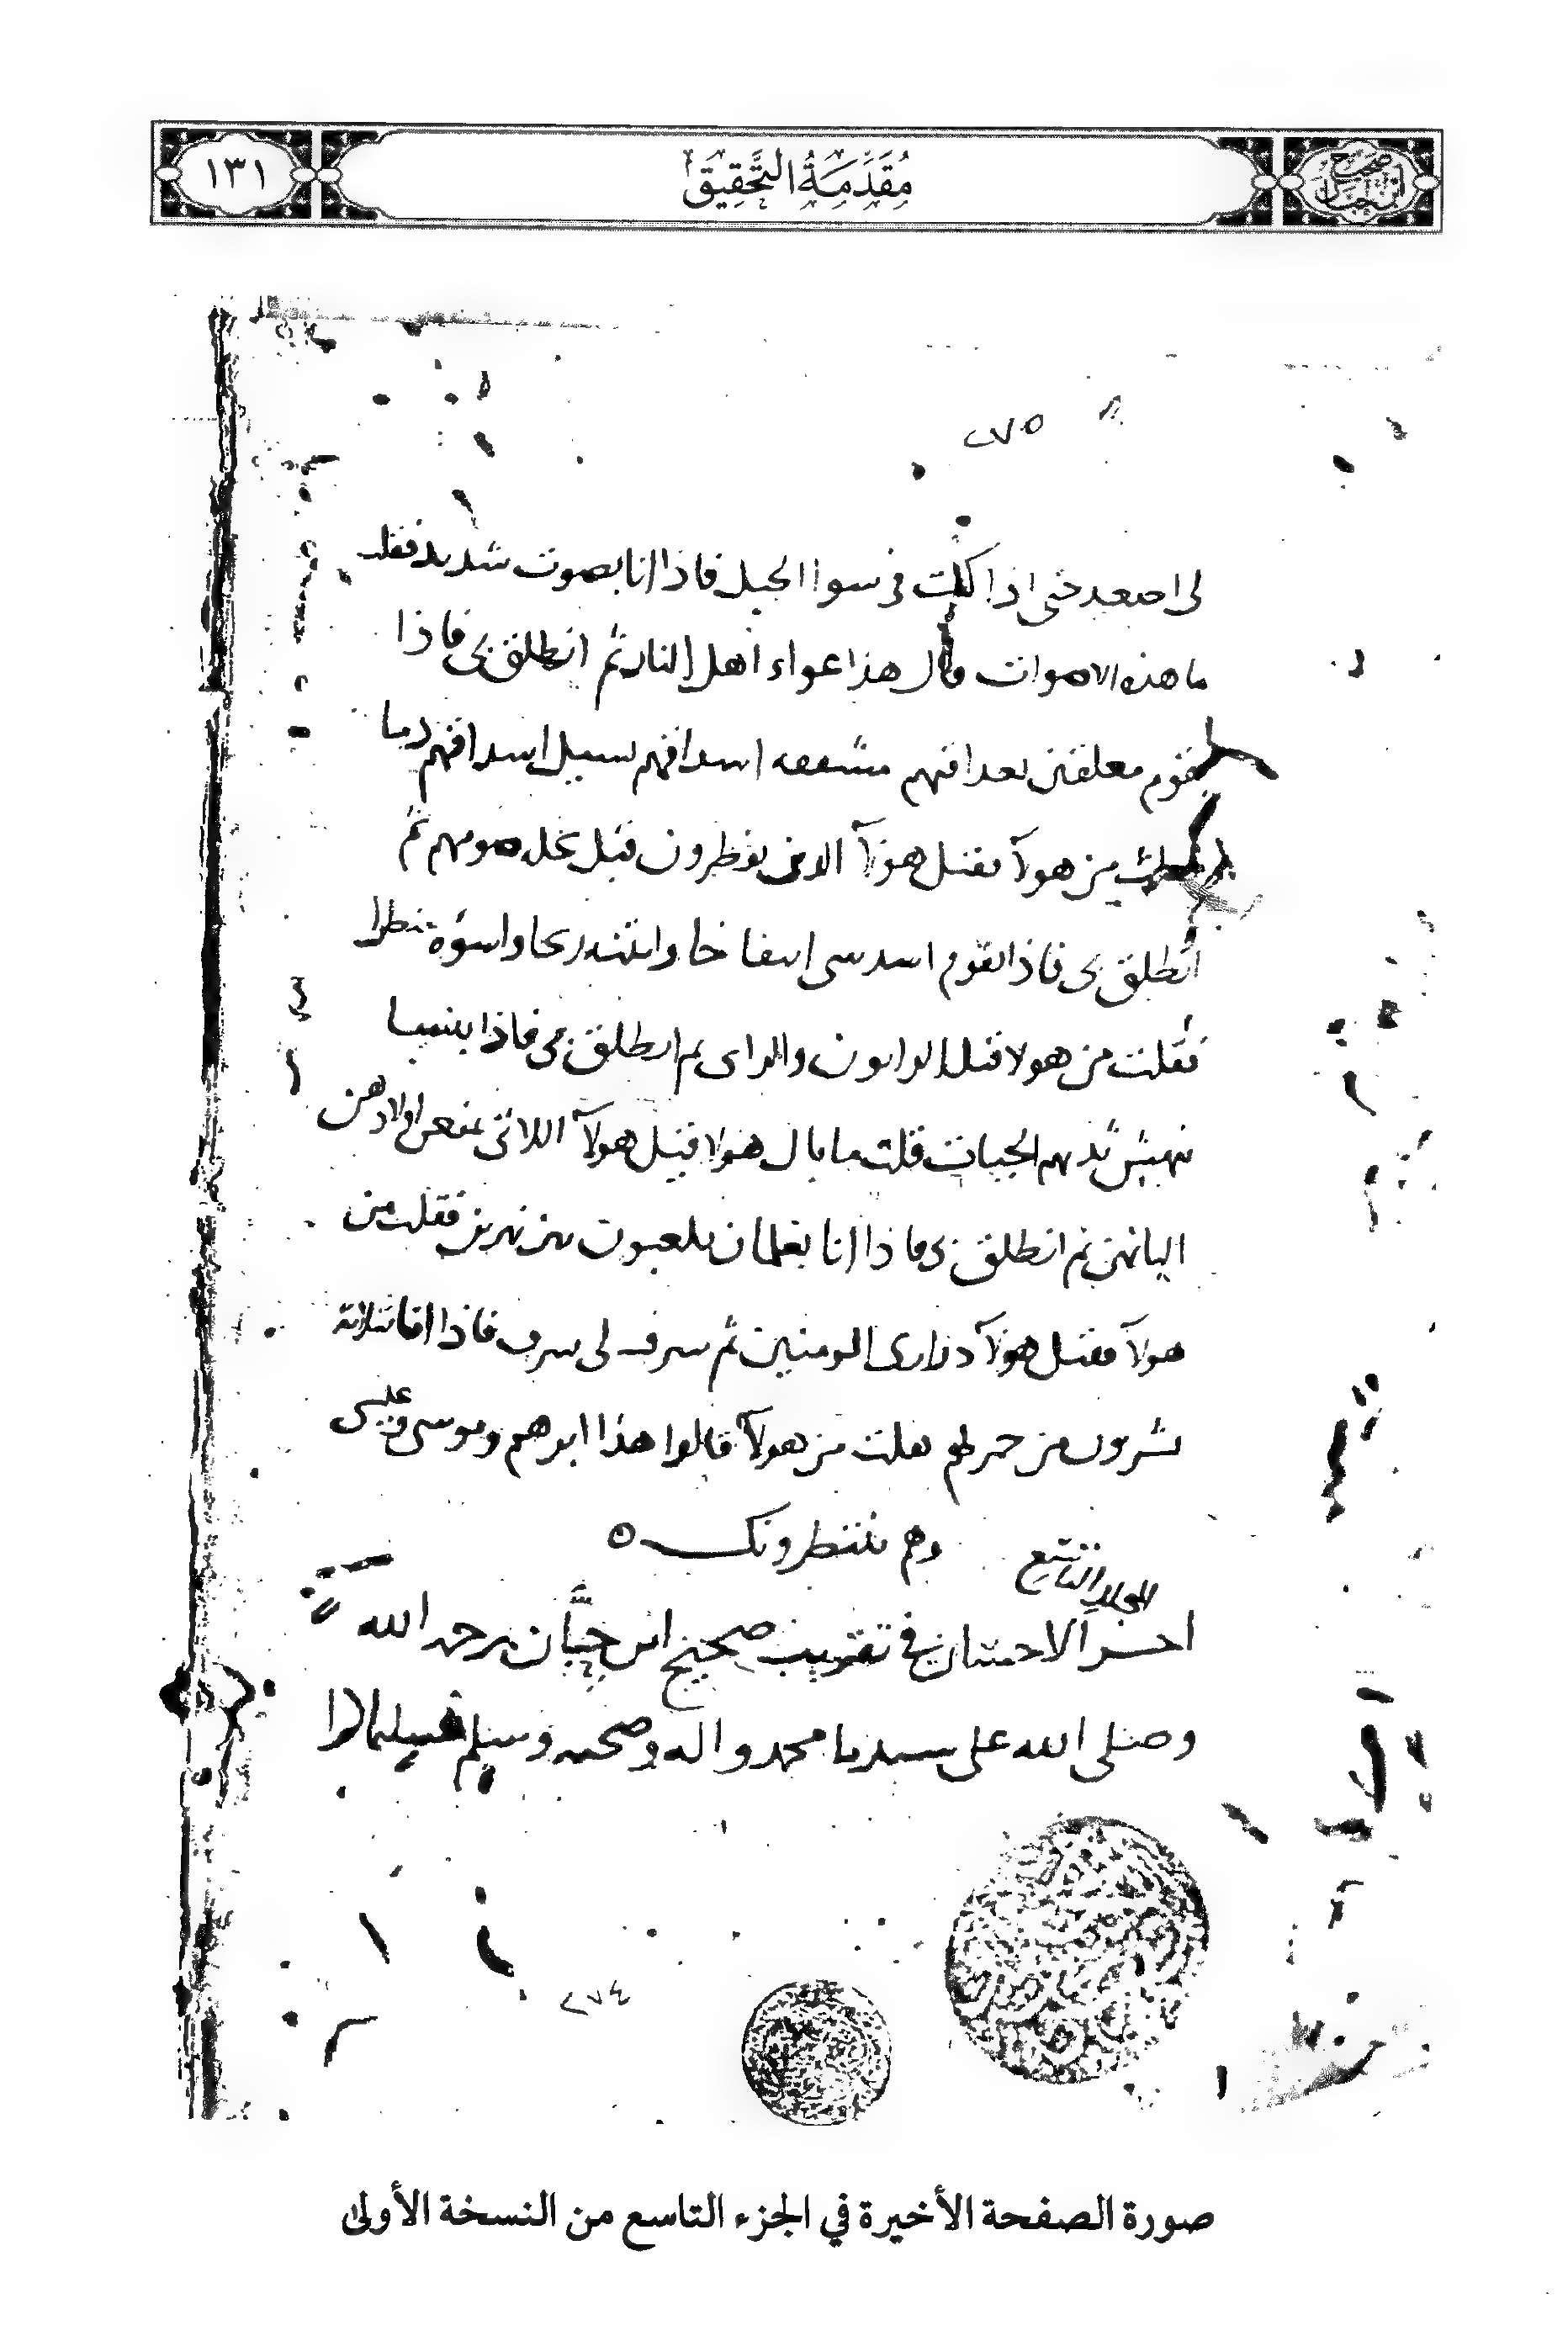 صحيح ابن حبان
مُقَدِّمَةُ التَّحْقِيقِ
١٣١
٢٧٥
لى اصعد حتى اذا كنت في سوا الجبل فاذا انا بصوت شديد فقلت
ما هذه الاصوات قال هذا عواء اهل النار ثم انطلق بى فاذا
بقوم معلقين بعراقيبهم مشققه اشداقهم تسيل اشداقهم دما
فقلت من هولآ فقيل هولآ الذين يفطرون قبل تحله صومهم ثم
انطلق بى فاذا بقوم اشد شى انتفاخا وانتنه ريحا واسوَه منظرا
فقلت من هولا قيل الزانون والزوانى ثم انطلق بى فاذا بنسا
تنهش ثديهن الحيات قلت ما بال هولا قيل هولآ اللاتى يمنعن اولادهن
البانهن ثم انطلق بى فاذا انا بغلمان يلعبون بين نهرين فقلت من
هولآ فقيل هولآ ذرارى المومنين ثم شرف لى شرف فاذا انا بثلاثة
يشربون من خمر لهم فقلت من هولآ قالوا هذا ابرهيم وموسى وعيسى
وهم ينتظرونك ٥
المجلد التاسع
اخر الاحسان في تقريب صحيح ابن حبَّان رحمه الله
وصلى الله على سيدنا محمد واله وصحبه وسلم تسليما
٢٧٤
صورة الصفحة الأخيرة في الجزء التاسع من النسخة الأولى